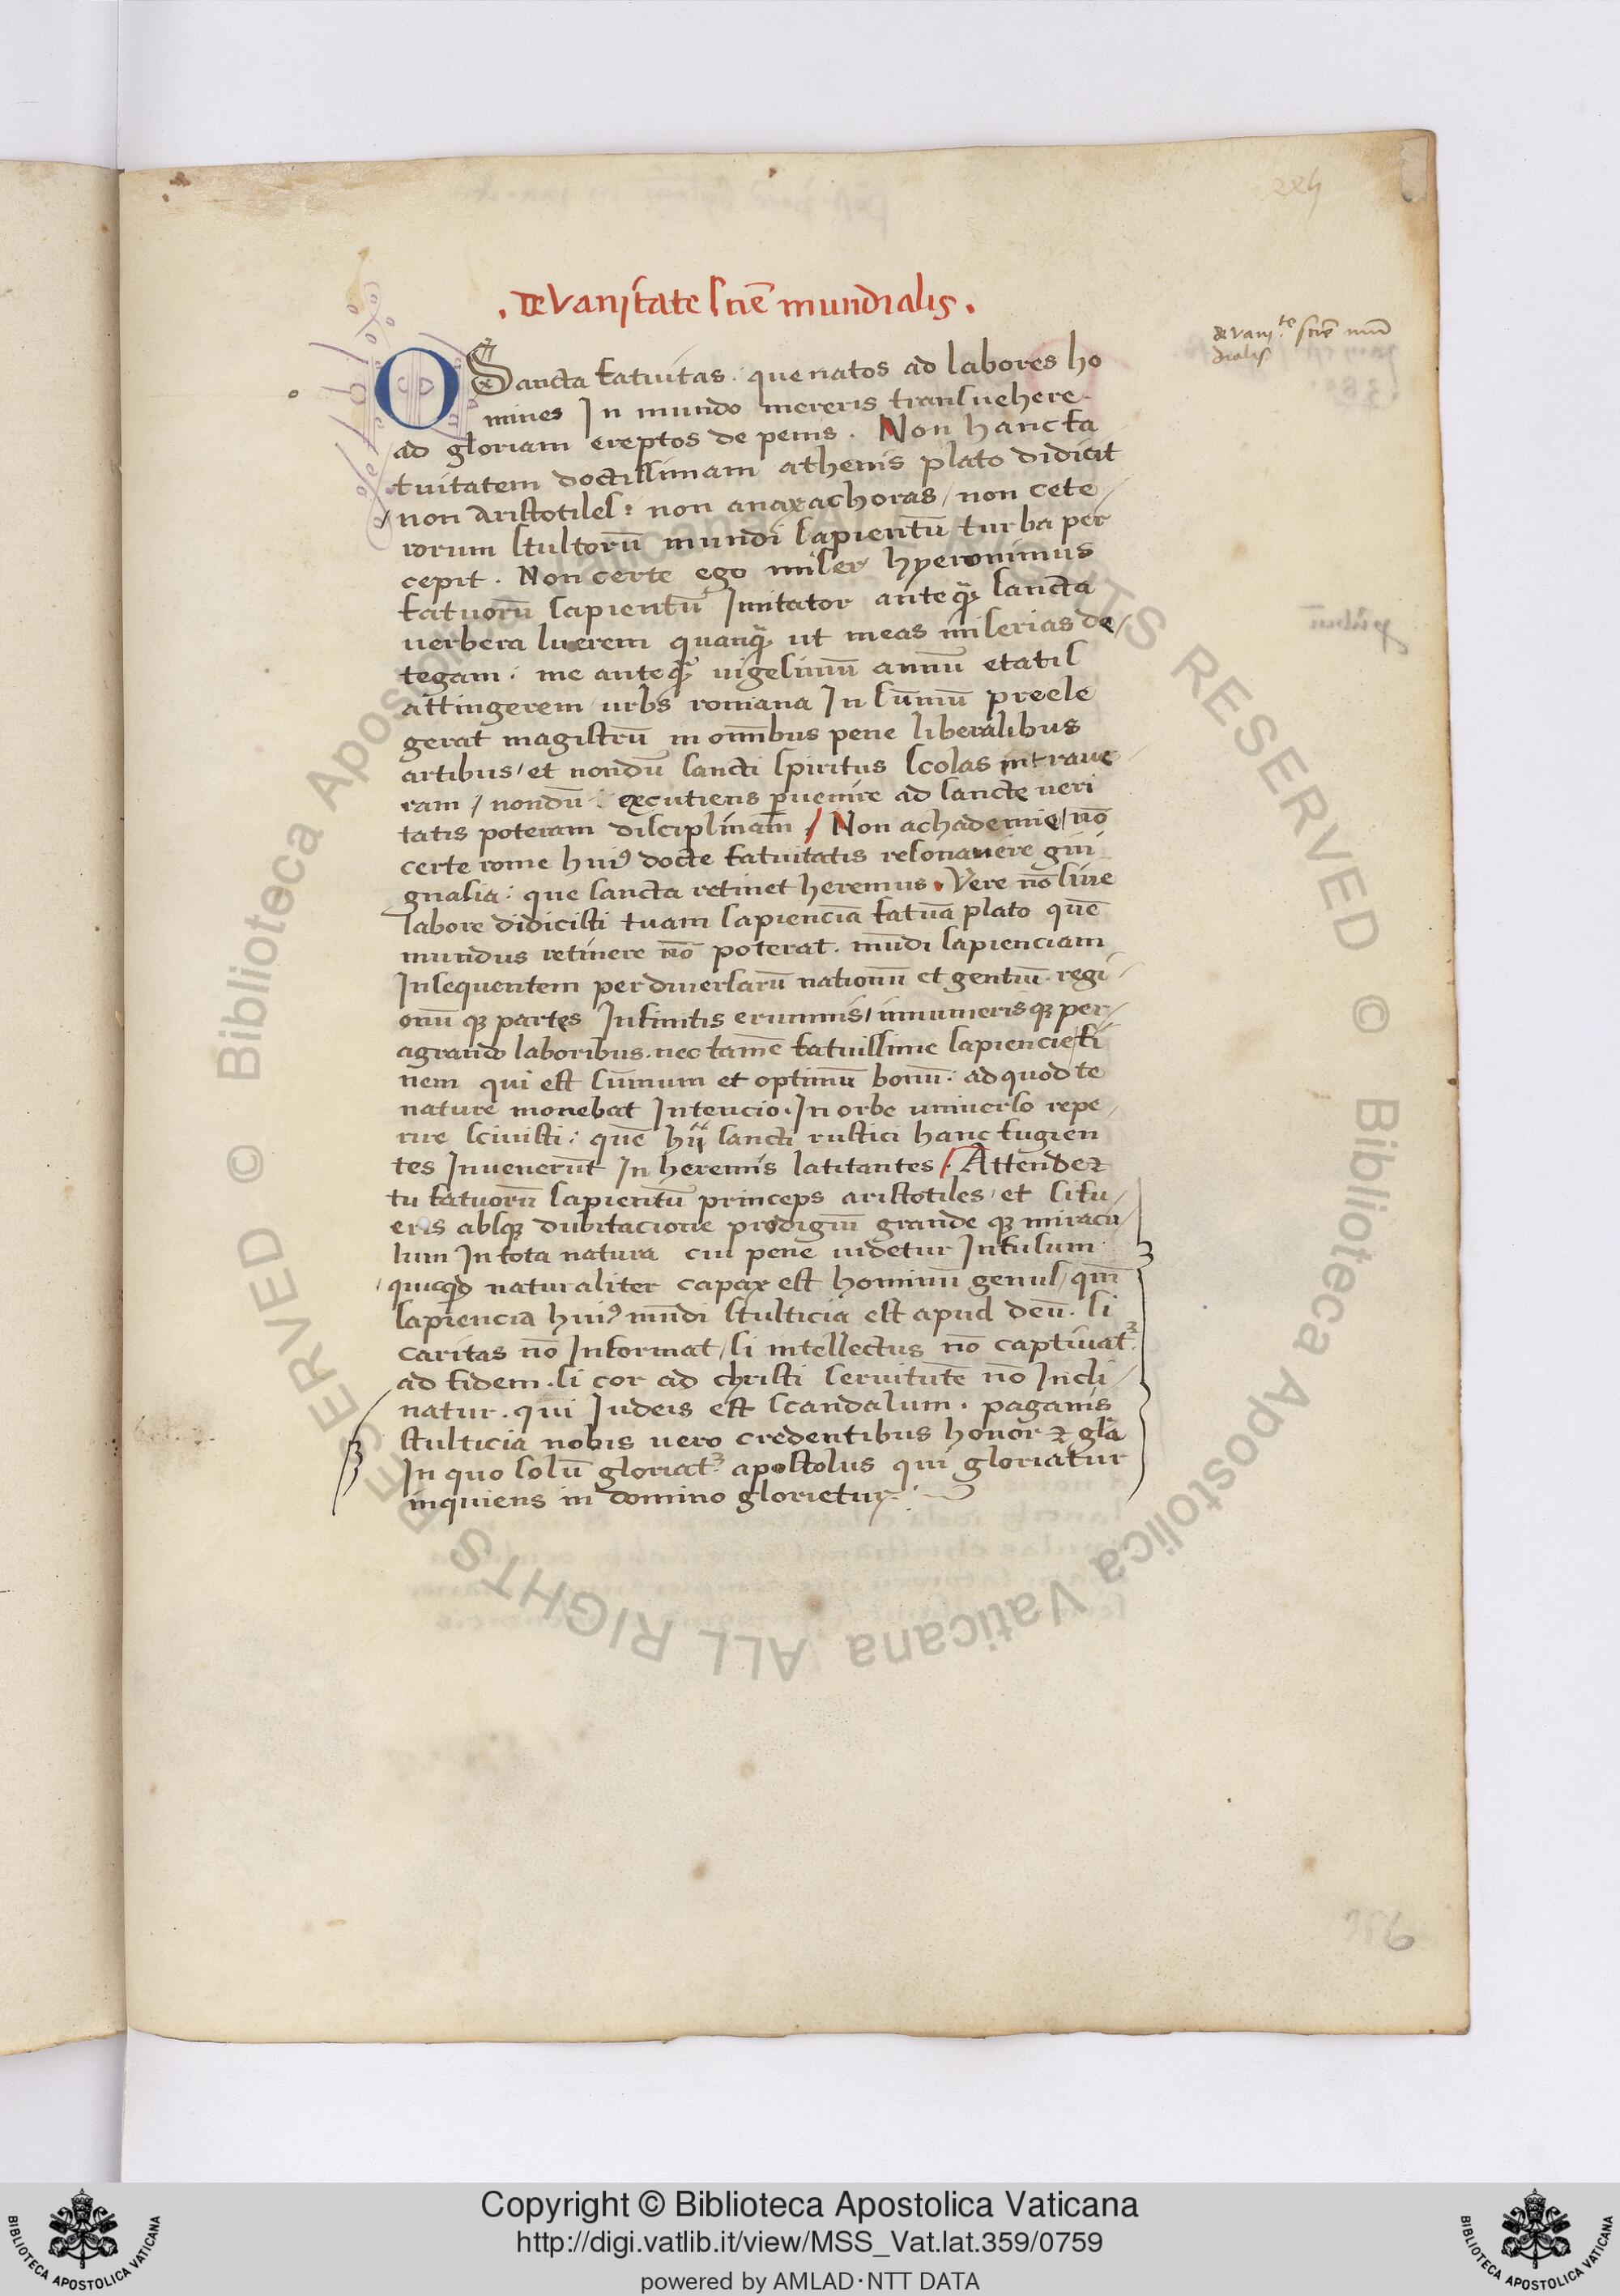 . de vanitate scie͞ mundialis .
de vani.te scie͞ mu͞
dialis
O Sancta fatuitas . que natos ad labores ho
mines In mundo mereris transuehere
ad gloriam ereptos de penis . Non hanc fa
tuitatem doctissimam athenis plato didicit
non Aristotiles : non anaxachoras / non cete /
rorum stultoru͞ mundi sapientu͞ turba per
cepit . Non certe ego miser hyeronimus
fatuoru͞ sapientu͞ Imitator anteqꝫ sancta
verbera luerem quanqꝫ ut meas miserias de /
tegam : me anteqꝫ uigesimu͞ annu͞ etatis
attingerem urbs romana In su͞mu͞ preele
gerat magistru͞ in om͞ibus pene liberalibus
artibus / et nondu͞ sancti spiritus scolas intraue
ram / nondu͞ : excutiens ꝑuenire ad sancte ueri
tatis poteram disciplinam / Non achademie / no͞
certe rome huiꝰ docte fatuitatis resonauere gin
gnasia : que sancta retinet heremus . Vere no͞ sine
labore didicisti tuam sapiencia͞ fatua͞ plato que͞
mundus retinere no͞ poterat . mu͞di sapienciam
Insequentem per diuersaru͞ nationu͞ et gentiu͞ . regi /
onu͞ qꝫ partes Infinitis erumnis / innumerisqꝫ per /
agrando laboribus . nec tame͞ fatuissime sapiencie / fi
nem qui est su͞mum et optimu͞ bonu͞ : ad quod te
nature monebat Intencio . In orbe uniuerso repe /
rire sciuisti : que͞ hii sancti rustici hanc fugien
tes Inueneru͞t In heremis latitantes / . Attende ⁊
tu fatuoru͞ sapientu͞ princeps aristotiles / et situ /
eris absqꝫ dubitacione prodigiu͞ grande qꝫ miracu /
lum In tota natura cui pene uidetur Infusum
quicqd naturaliter capax est hominu͞ genus / qm͞
sapiencia huiꝰ mu͞di stulticia est apud deu͞ . si
caritas no͞ Informat / si intellectus no͞ captiuat᷑
ad fidem . si cor ad christi seruitute͞ no͞ Incli /
natur . qui Iudeis est scandalum . paganis
stulticia nobis uero credentibus honor ⁊ gla͞
In quo solu͞ gloriat᷑ apostolus qui gloriatur
inquiens in domino glorietur
Copyright © Biblioteca Apostolica Vaticana
http://digi.vatlib.it/view/MSS_Vat.lat.359/0759
powered by AMLAD·NTT DATA
BIBLIOTECA APOSTOLICA VATICANA
BIBLIOTECA APOSTOLICA VATICANA
© Biblioteca Apostolica Vaticana ALL RIGHTS RESERVED © Biblioteca Apostolica Vaticana ALL RIGHTS RESERVED